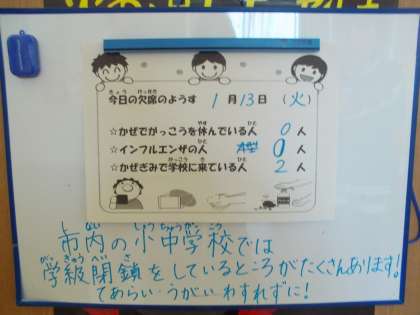 今日の欠席のようす 1月13日(火)
☆かぜでがっこうを休んでいる人 0人
☆インフルエンザの人 0人
☆かぜぎみで学校に来ている人 2人
市内の小中学校では
学級閉鎖をしているところがたくさんあります!
てあらい・うがいわすれずに!